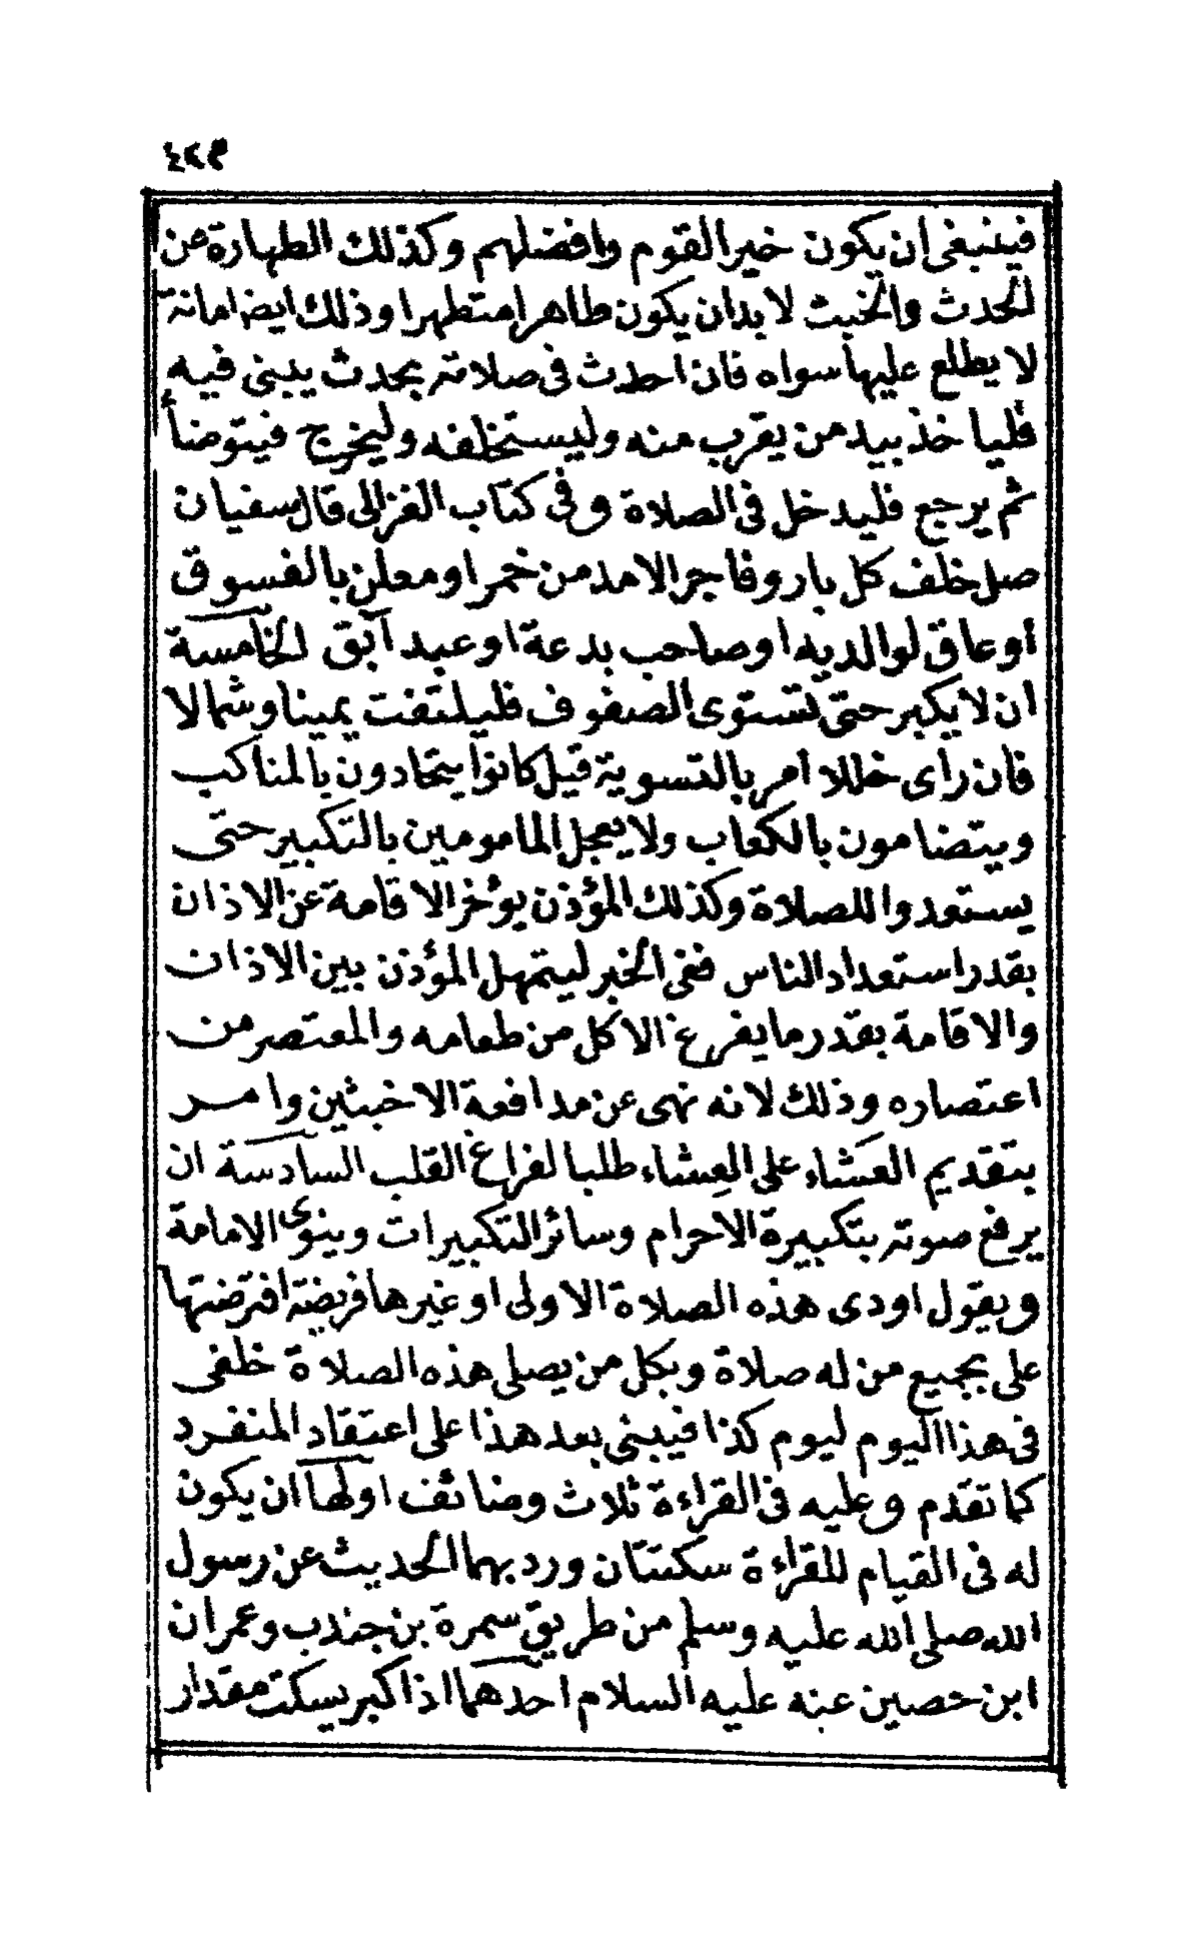 ٤٢٩
فينبغى ان يكون خير القوم وافضلهم وكذلك الطهارة من
الحدث والخبث لا بد ان يكون طاهرا متطهرا وذلك ايضا امانة
لا يطلع عليها سواه فان احدث فى صلاته بحدث يبنى فيه
فليا خذ بيد من يقرب منه وليستخلفه وليخرج فيتوضأ
ثم يرجع فليدخل فى الصلاة وفى كتاب الغزالى قال سفيان
صل خلف كل بار وفاجر الا مد من خمر او معلن بالفسوق
أو عاق لوالديه او صاحب بدعة او عبد آبق الخامسة
ان لا يكبر حتى تستوى الصفوف فليلتفت يمينا وشمالا
فان رأى خللا أمر بالتسوية قيل كانوا يتحادون بالمناكب
ويتضامون بالكعاب ولا يعجل المامومين بالتكبير حتى
يستعدوا للصلاة وكذلك المؤذن يؤخر الاقامة عن الاذان
بقدر استعداد الناس ففى الخبر ليتمهل المؤذن بين الاذان
والاقامة بقدر ما يفرغ الاكل من طعامه والمعتصر من
اعتصاره وذلك لانه نهى عن مدافعة الاخبثين وامر
بتقديم العَشاء على العِشاء طلبا لفراغ القلب السادسة ان
يرفع صوته بتكبيرة الاحرام وسائر التكبيرات وينوى الامامة
ويقول اودى هذه الصلاة الاولى او غيرها فريضة افترضتها
على بجميع من له صلاة وبكل من يصلى هذه الصلاة خلفى
فى هذا اليوم ليوم كذا فيبنى بعد هذا على اعتقاد المنفرد
كما تقدم وعليه فى القراءة ثلاث وضائف اولها ان يكون
له فى القيام للقراءة سكتتان ورد بهما الحديث عن رسول
الله صلى الله عليه وسلم من طريق سمرة بن جندب وعمران
ابن حصين عنه عليه السلام احدهما اذا كبر يسكت مقدار